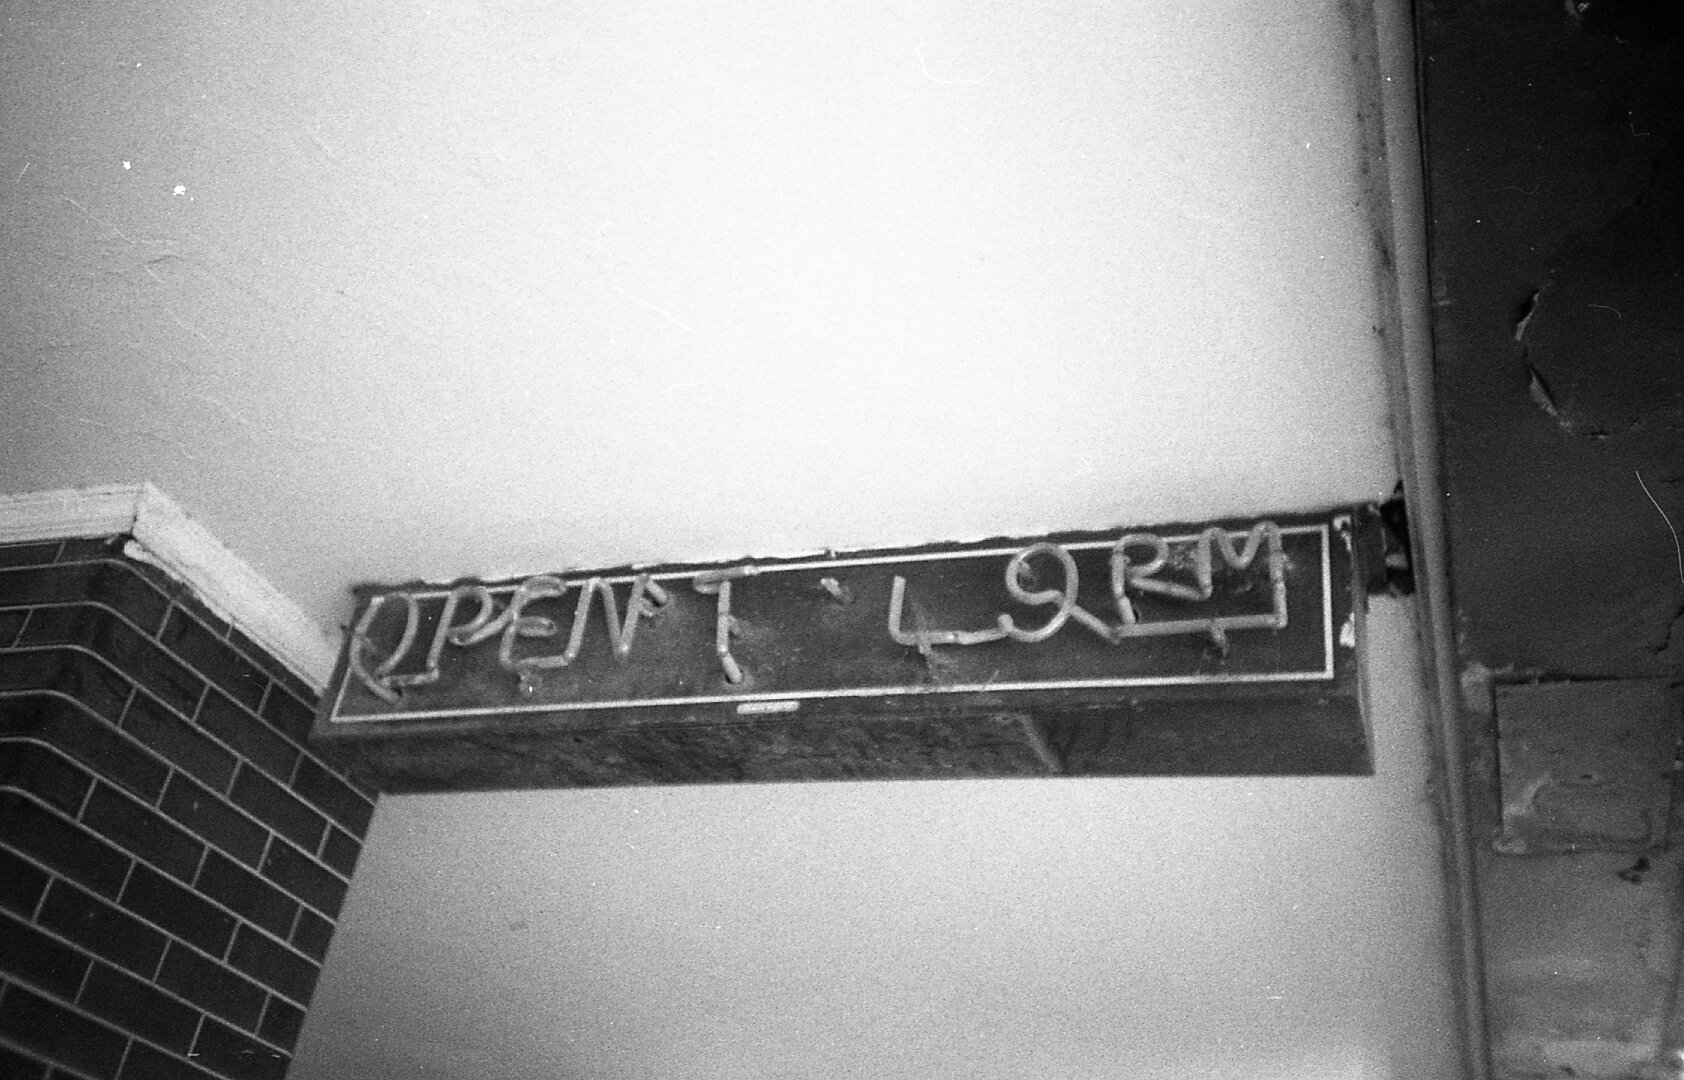 OPEN 'TIL 2AM